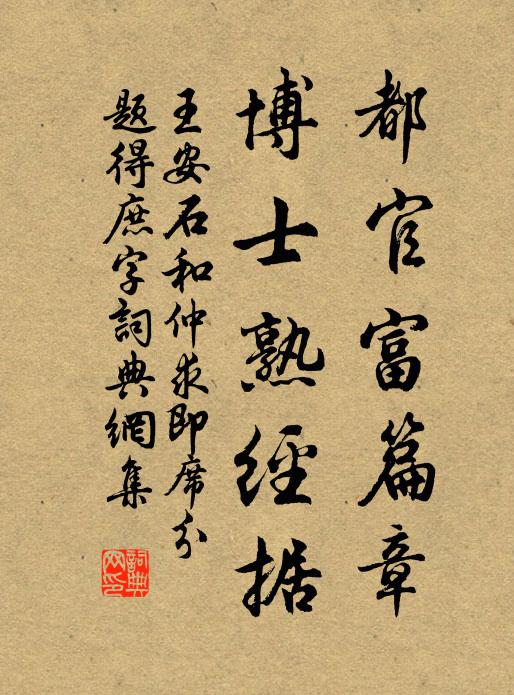 都官富篇章
博士熟經据
王安石和仲求即席分
題得庶字詞典網集
詞典網印